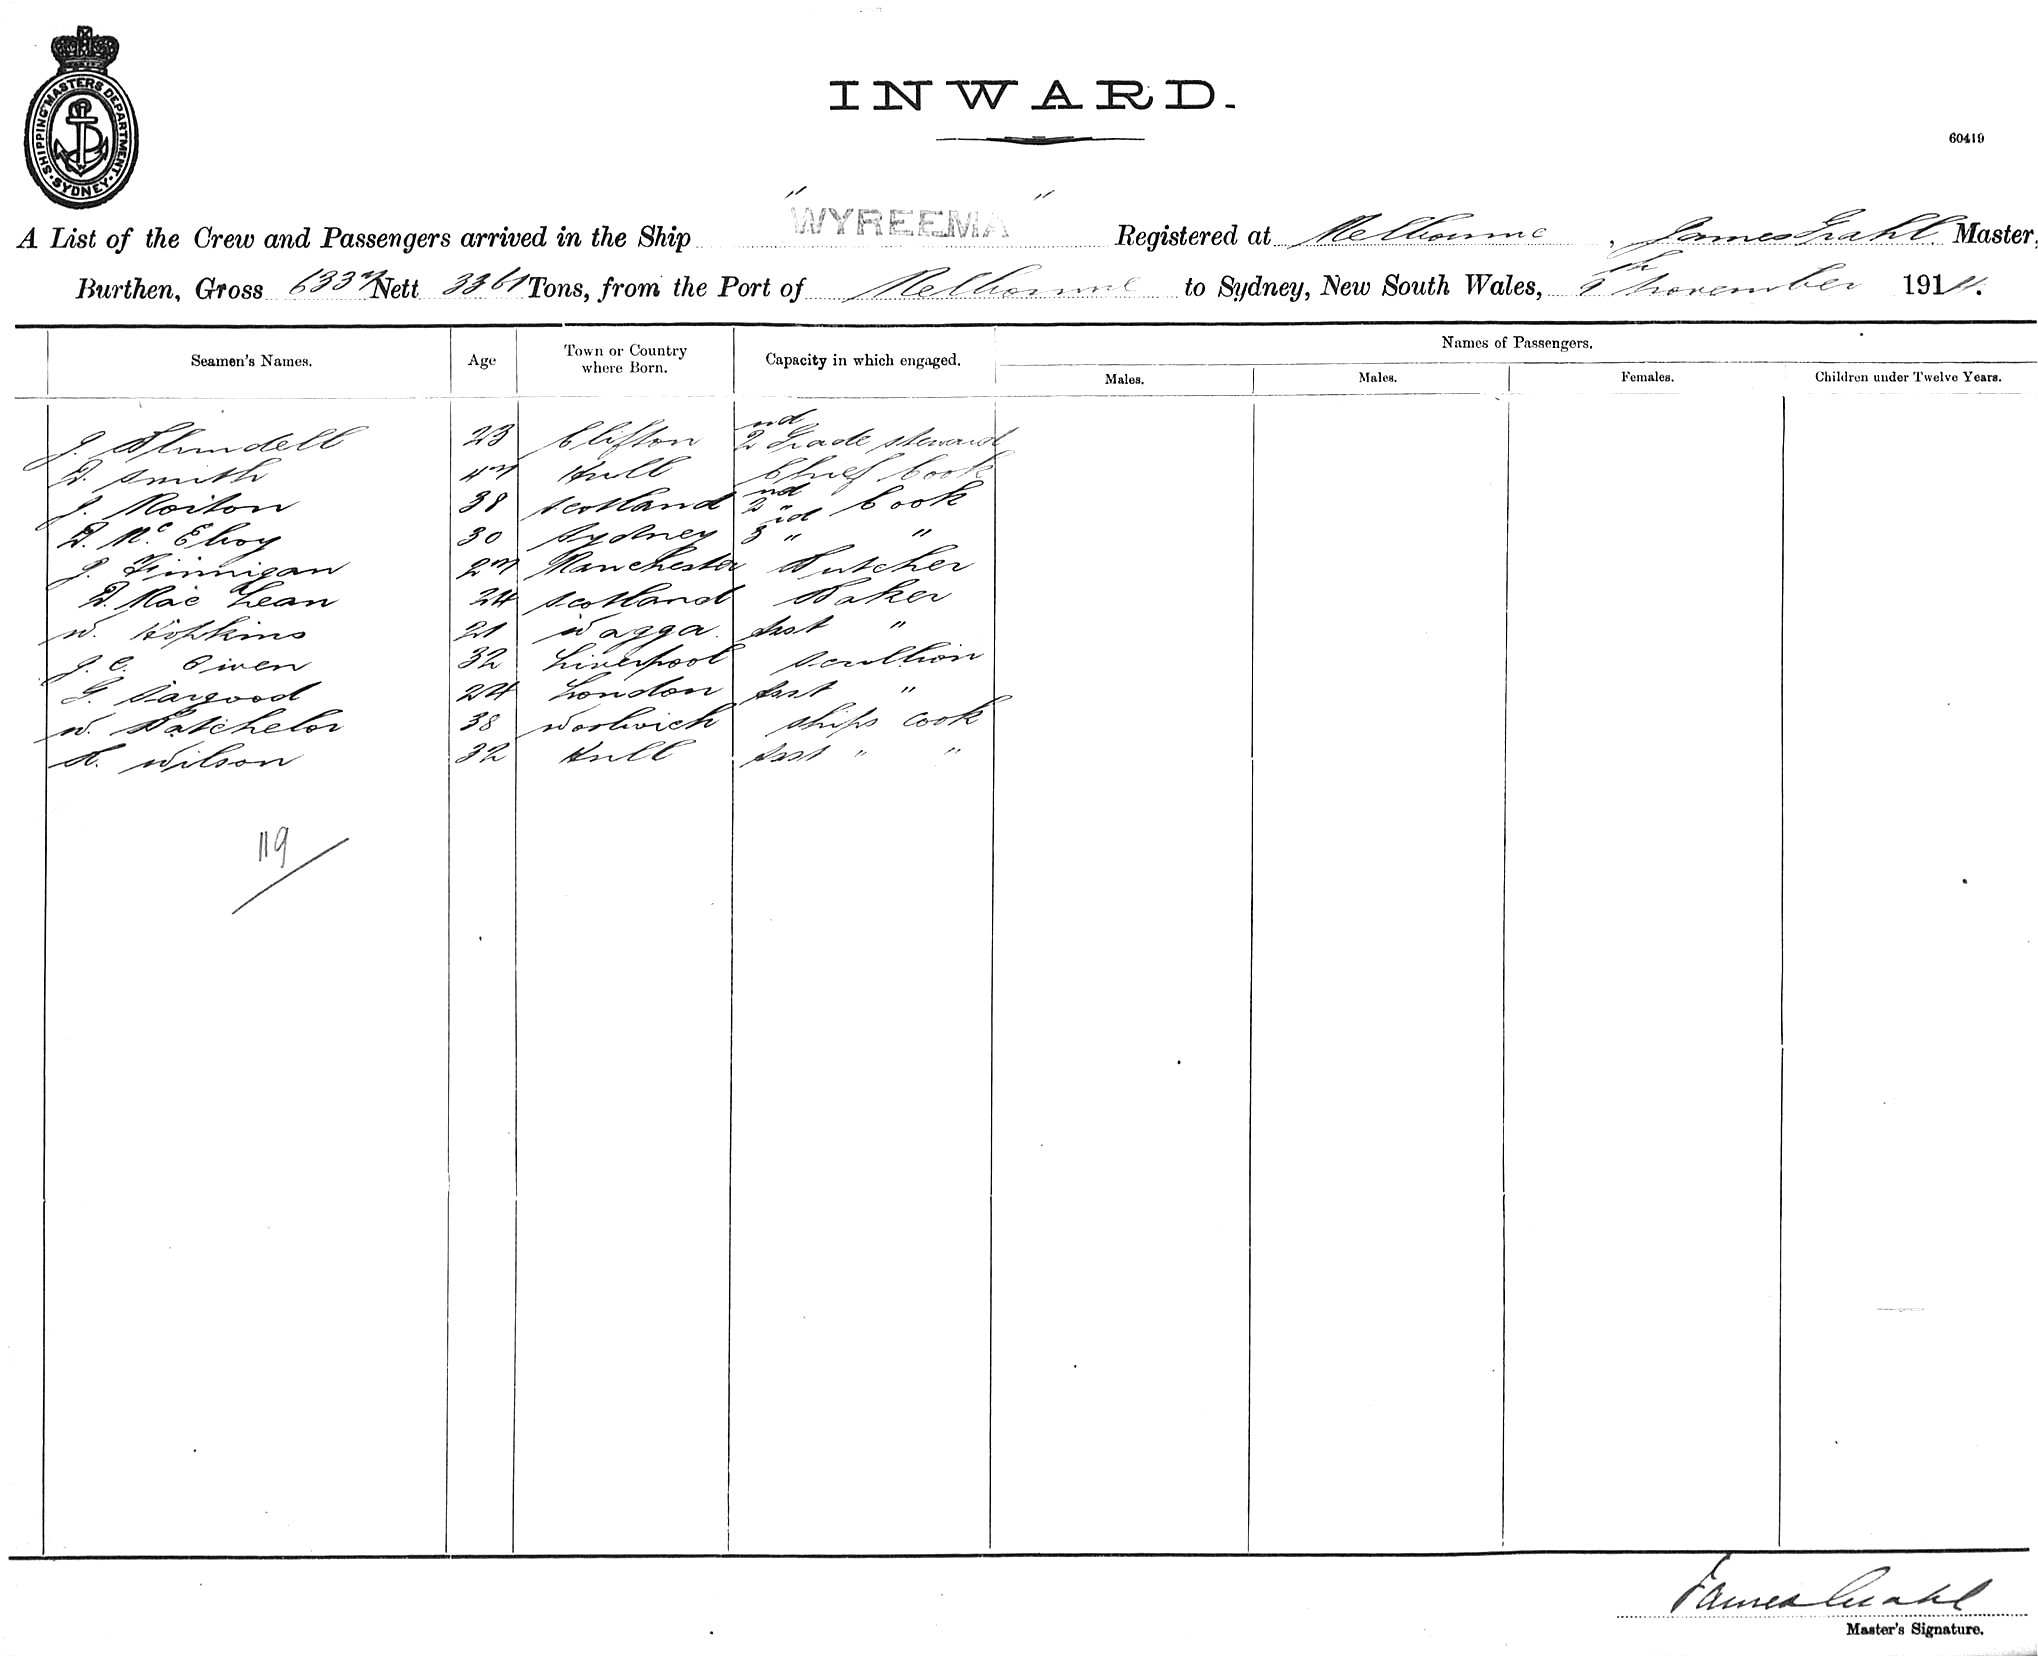 SHIPPING MASTERS DEPARTMENT SYDNEY
INWARD.
60419
A List of the Crew and Passengers arrived in the Ship "WYREEMA" Registered at Melbourne, James Grahl Master,
Burthen, Gross 6337 Nett 3361 Tons, from the Port of Melbourne to Sydney, New South Wales, 9th November 1914.
Seamen's Names. Age Town or Country where Born. Capacity in which engaged. Names of Passengers.
Males. Males. Females. Children under Twelve Years.
J. Blundell 23 Clifton 2nd Grade Steward
D. Smith 47 Hull Chief Cook
J. Morton 38 Scotland 2nd Cook
D. Mc Elroy 30 Sydney 3rd " "
J. Finnigan 27 Manchester Butcher
D. Mac Lean 24 Scotland Baker
W. Hopkins 21 Wagga asst "
J. C. Owen 32 Liverpool Scullion
G. Sargood 24 London asst "
W. Batchelor 38 Woolwich Ships Cook
A. Wilson 32 Hull asst " "
119
James Grahl
Master's Signature.